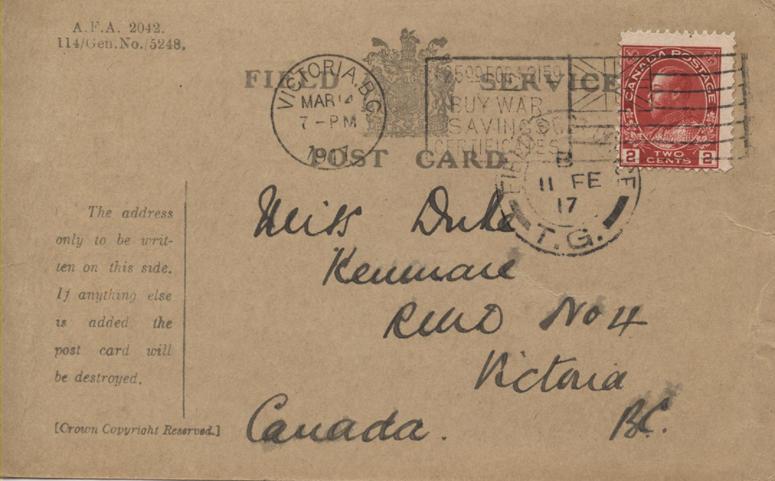 A.F.A. 2042.
114/Gen.No./5248.
FIELD SERVICE
POST CARD
VICTORIA, B.C.
MAR 14
7 - PM
1917
BUY WAR
SAVINGS
CERTIFICATES
CANADA POSTAGE
2 TWO CENTS 2
FIELD POST OFFICE
11 FE
17
T.G.
The address
only to be writ-
ten on this side.
If anything else
is added the
post card will
be destroyed.
[Crown Copyright Reserved.]
Miss Duke
Kenmare
RMD No 4
Victoria
Canada. B.C.